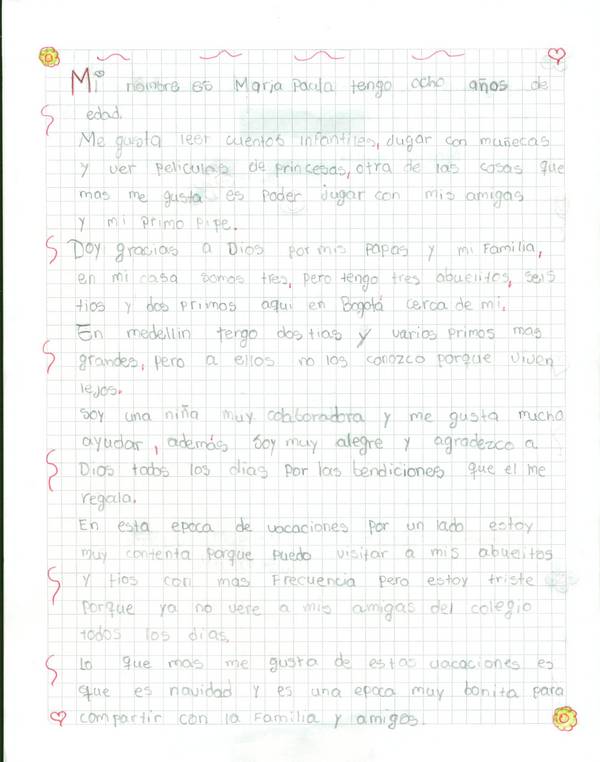 Mi nombre es Maria Paula tengo ocho años de
edad.
Me gusta leer cuentos infantiles, Jugar con muñecas
y ver peliculas de princesas, otra de las cosas que
mas me gusta es poder jugar con mis amigas
y mi primo pipe.
Doy gracias a Dios por mis papas y mi Familia,
en mi casa somos tres, pero tengo tres abuelitos, seis
tios y dos primos aqui en Bogotá cerca de mi.
En medellin tengo dos tias y varios primos mas
grandes, pero a ellos no los conozco porque viven
lejos.
soy una niña muy colaboradora y me gusta mucho
ayudar, además soy muy alegre y agradezco a
Dios todos los dias por las bendiciones que el me
regala.
En esta epoca de vacaciones por un lado estoy
muy contenta porque puedo visitar a mis abuelitos
y tios con mas Frecuencia pero estoy triste
porque ya no vere a mis amigas del colegio
todos los dias.
Lo que mas me gusta de estas vacaciones es
que es navidad y es una epoca muy bonita para
compartir con la Familia y amigos.